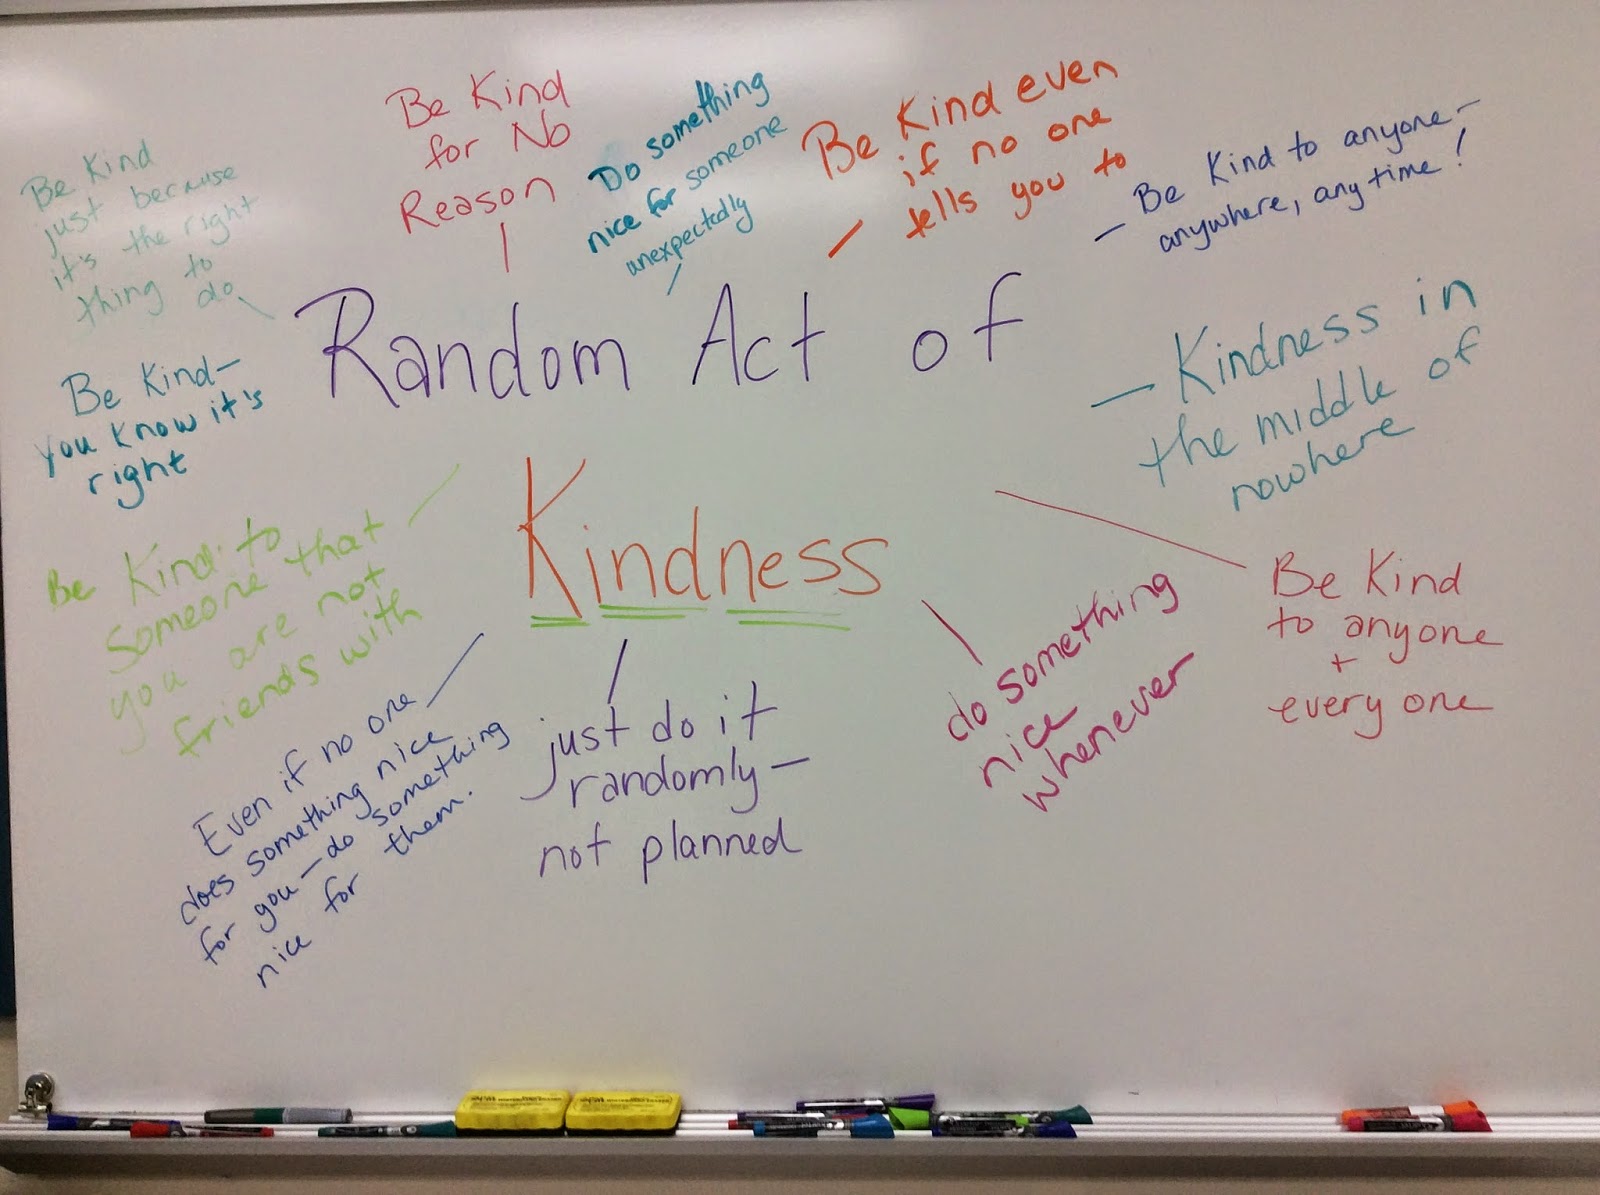 Random Act of
Kindness
Be Kind
just because
it's the right
thing to
do
Be Kind
for No
Reason
Do something
nice for someone
unexpectedly
Be Kind even
if no one
tells you to
Be Kind to anyone—
anywhere, anytime!
— Kindness in
the middle of
nowhere
Be Kind
to anyone
+
every one
do something
nice
whenever
just do it
randomly—
not planned
Even if no one
does something nice
for you—do something
nice for them.
Be Kind to
someone that
you are not
friends with
Be Kind—
you know it's
right